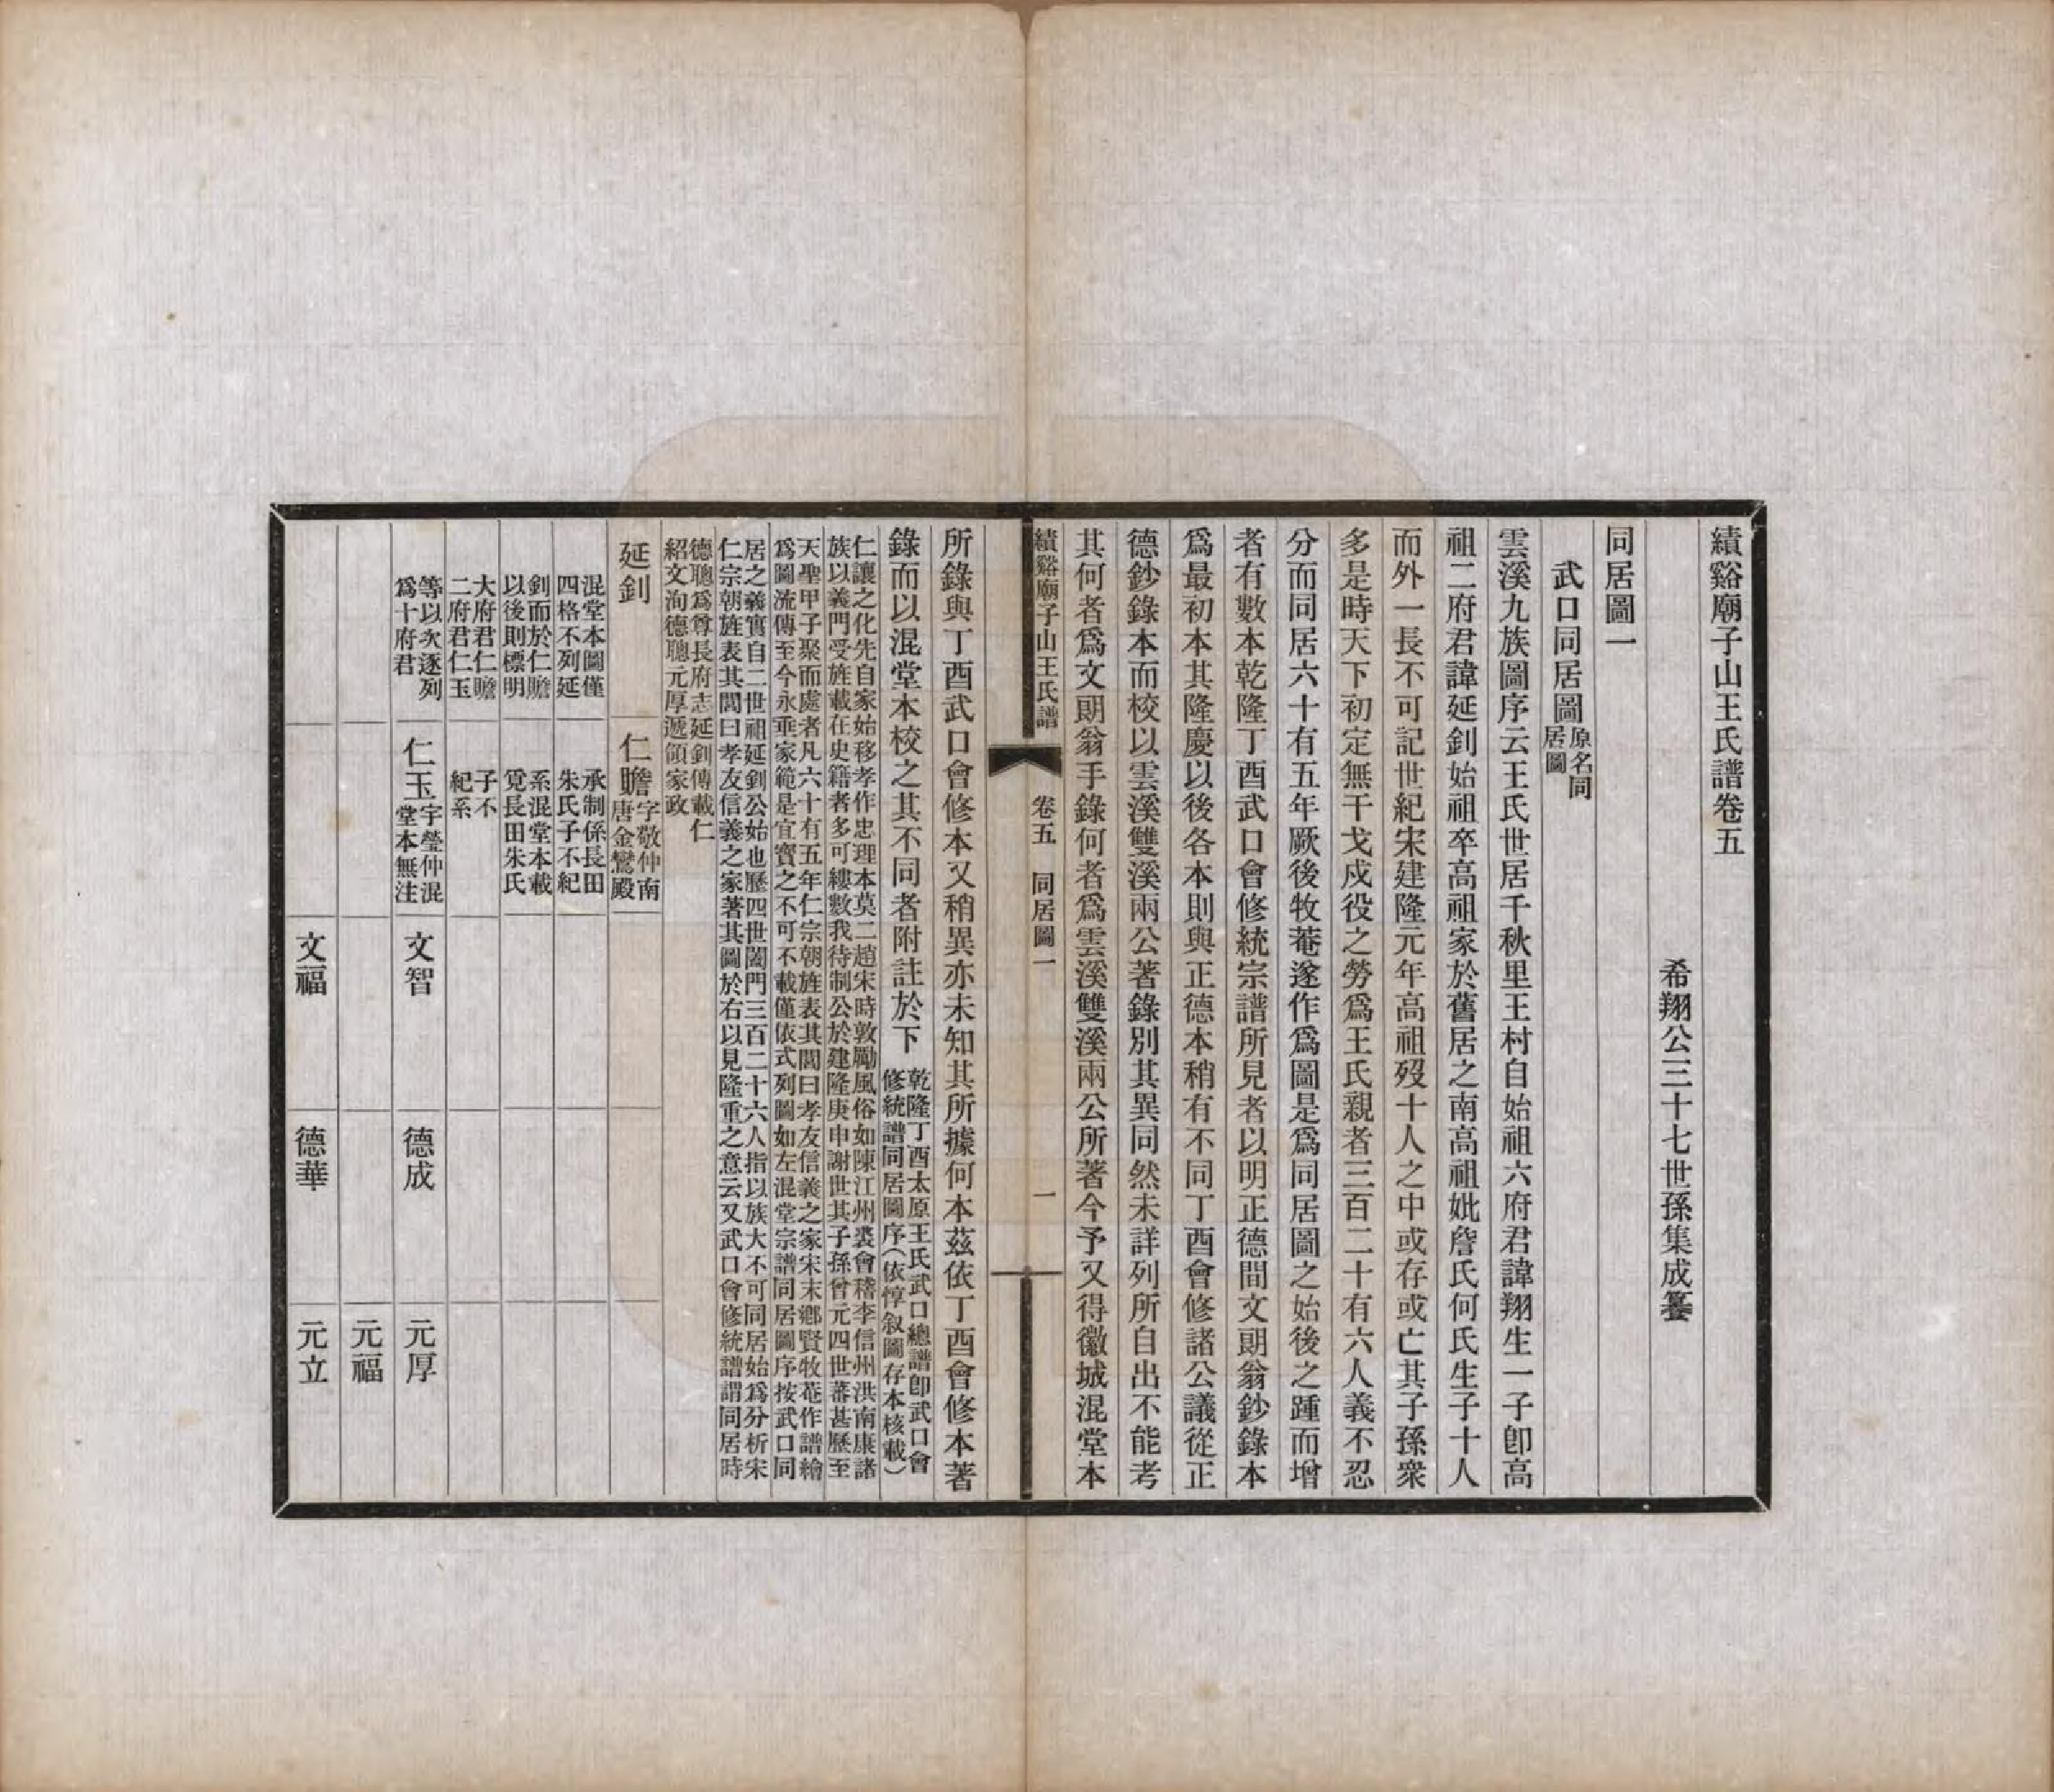 績谿廟子山王氏譜卷五
希翔公三十七世孫集成纂
同居圖一
武口同居圖
原名同
居圖
雲溪九族圖序云王氏世居千秋里王村自始祖六府君諱翔生一子卽高
祖二府君諱延釗始祖卒高祖家於舊居之南高祖妣詹氏何氏生子十人
而外一長不可記世紀宋建隆元年高祖歿十人之中或存或亡其子孫衆
多是時天下初定無干戈戍役之勞爲王氏親者三百二十有六人義不忍
分而同居六十有五年厥後牧菴遂作爲圖是爲同居圖之始後之踵而增
者有數本乾隆丁酉武口會修統宗譜所見者以明正德間文朗翁鈔錄本
爲最初本其隆慶以後各本則與正德本稍有不同丁酉會修諸公議從正
德鈔錄本而校以雲溪雙溪兩公著錄別其異同然未詳列所自出不能考
其何者爲文朗翁手錄何者爲雲溪雙溪兩公所著今予又得徽城混堂本
績谿廟子山王氏譜
卷五 同居圖一
一
所錄與丁酉武口會修本又稍異亦未知其所據何本茲依丁酉會修本著
錄而以混堂本校之其不同者附註於下
乾隆丁酉太原王氏武口總譜卽武口會
修統譜同居圖序（依惇叙圖存本核載）
仁讓之化先自家始移孝作忠理本莫二趙宋時敦勵風俗如陳江州裘會稽李信州洪南康諸
族以義門受旌載在史籍者多可縷數我待制公於建隆庚申謝世其子孫曾元四世蕃甚歷至
天聖甲子聚而處者凡六十有五年仁宗朝旌表其閭曰孝友信義之家宋末鄕賢牧菴作譜繪
爲圖流傳至今永垂家範是宜寶之不可不載僅依式列圖如左混堂宗譜同居圖序按武口同
居之義實自二世祖延釗公始也歷四世閤門三百二十六人指以族大不可同居始爲分析宋
仁宗朝旌表其閭曰孝友信義之家著其圖於右以見隆重之意云又武口會修統譜謂同居時
德聰爲尊長府志延釗傳載仁
紹文洵德聰元厚遞領家政
延釗
仁贍
字敬仲南
唐金鸞殿
混堂本圖僅
四格不列延
承制係長田
朱氏子不紀
釗而於仁贍
以後則標明
系混堂本載
霓長田朱氏
大府君仁贍
二府君仁玉
子不
紀系
等以次逐列
爲十府君
仁玉
字瑩仲混
堂本無注
文智
德成
元厚
元福
文福
德華
元立